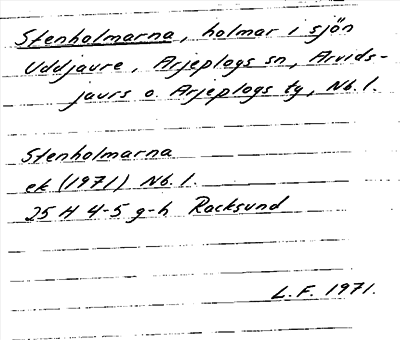 Stenholmarna, holmar i sjön
Uddjaure, Arjeplogs sn, Arvids-
jaurs o. Arjeplogs tg, Nb. l.
Stenholmarna
ek (1971) Nb. l.
25 H 4-5 g-h Racksund
L.F. 1971.